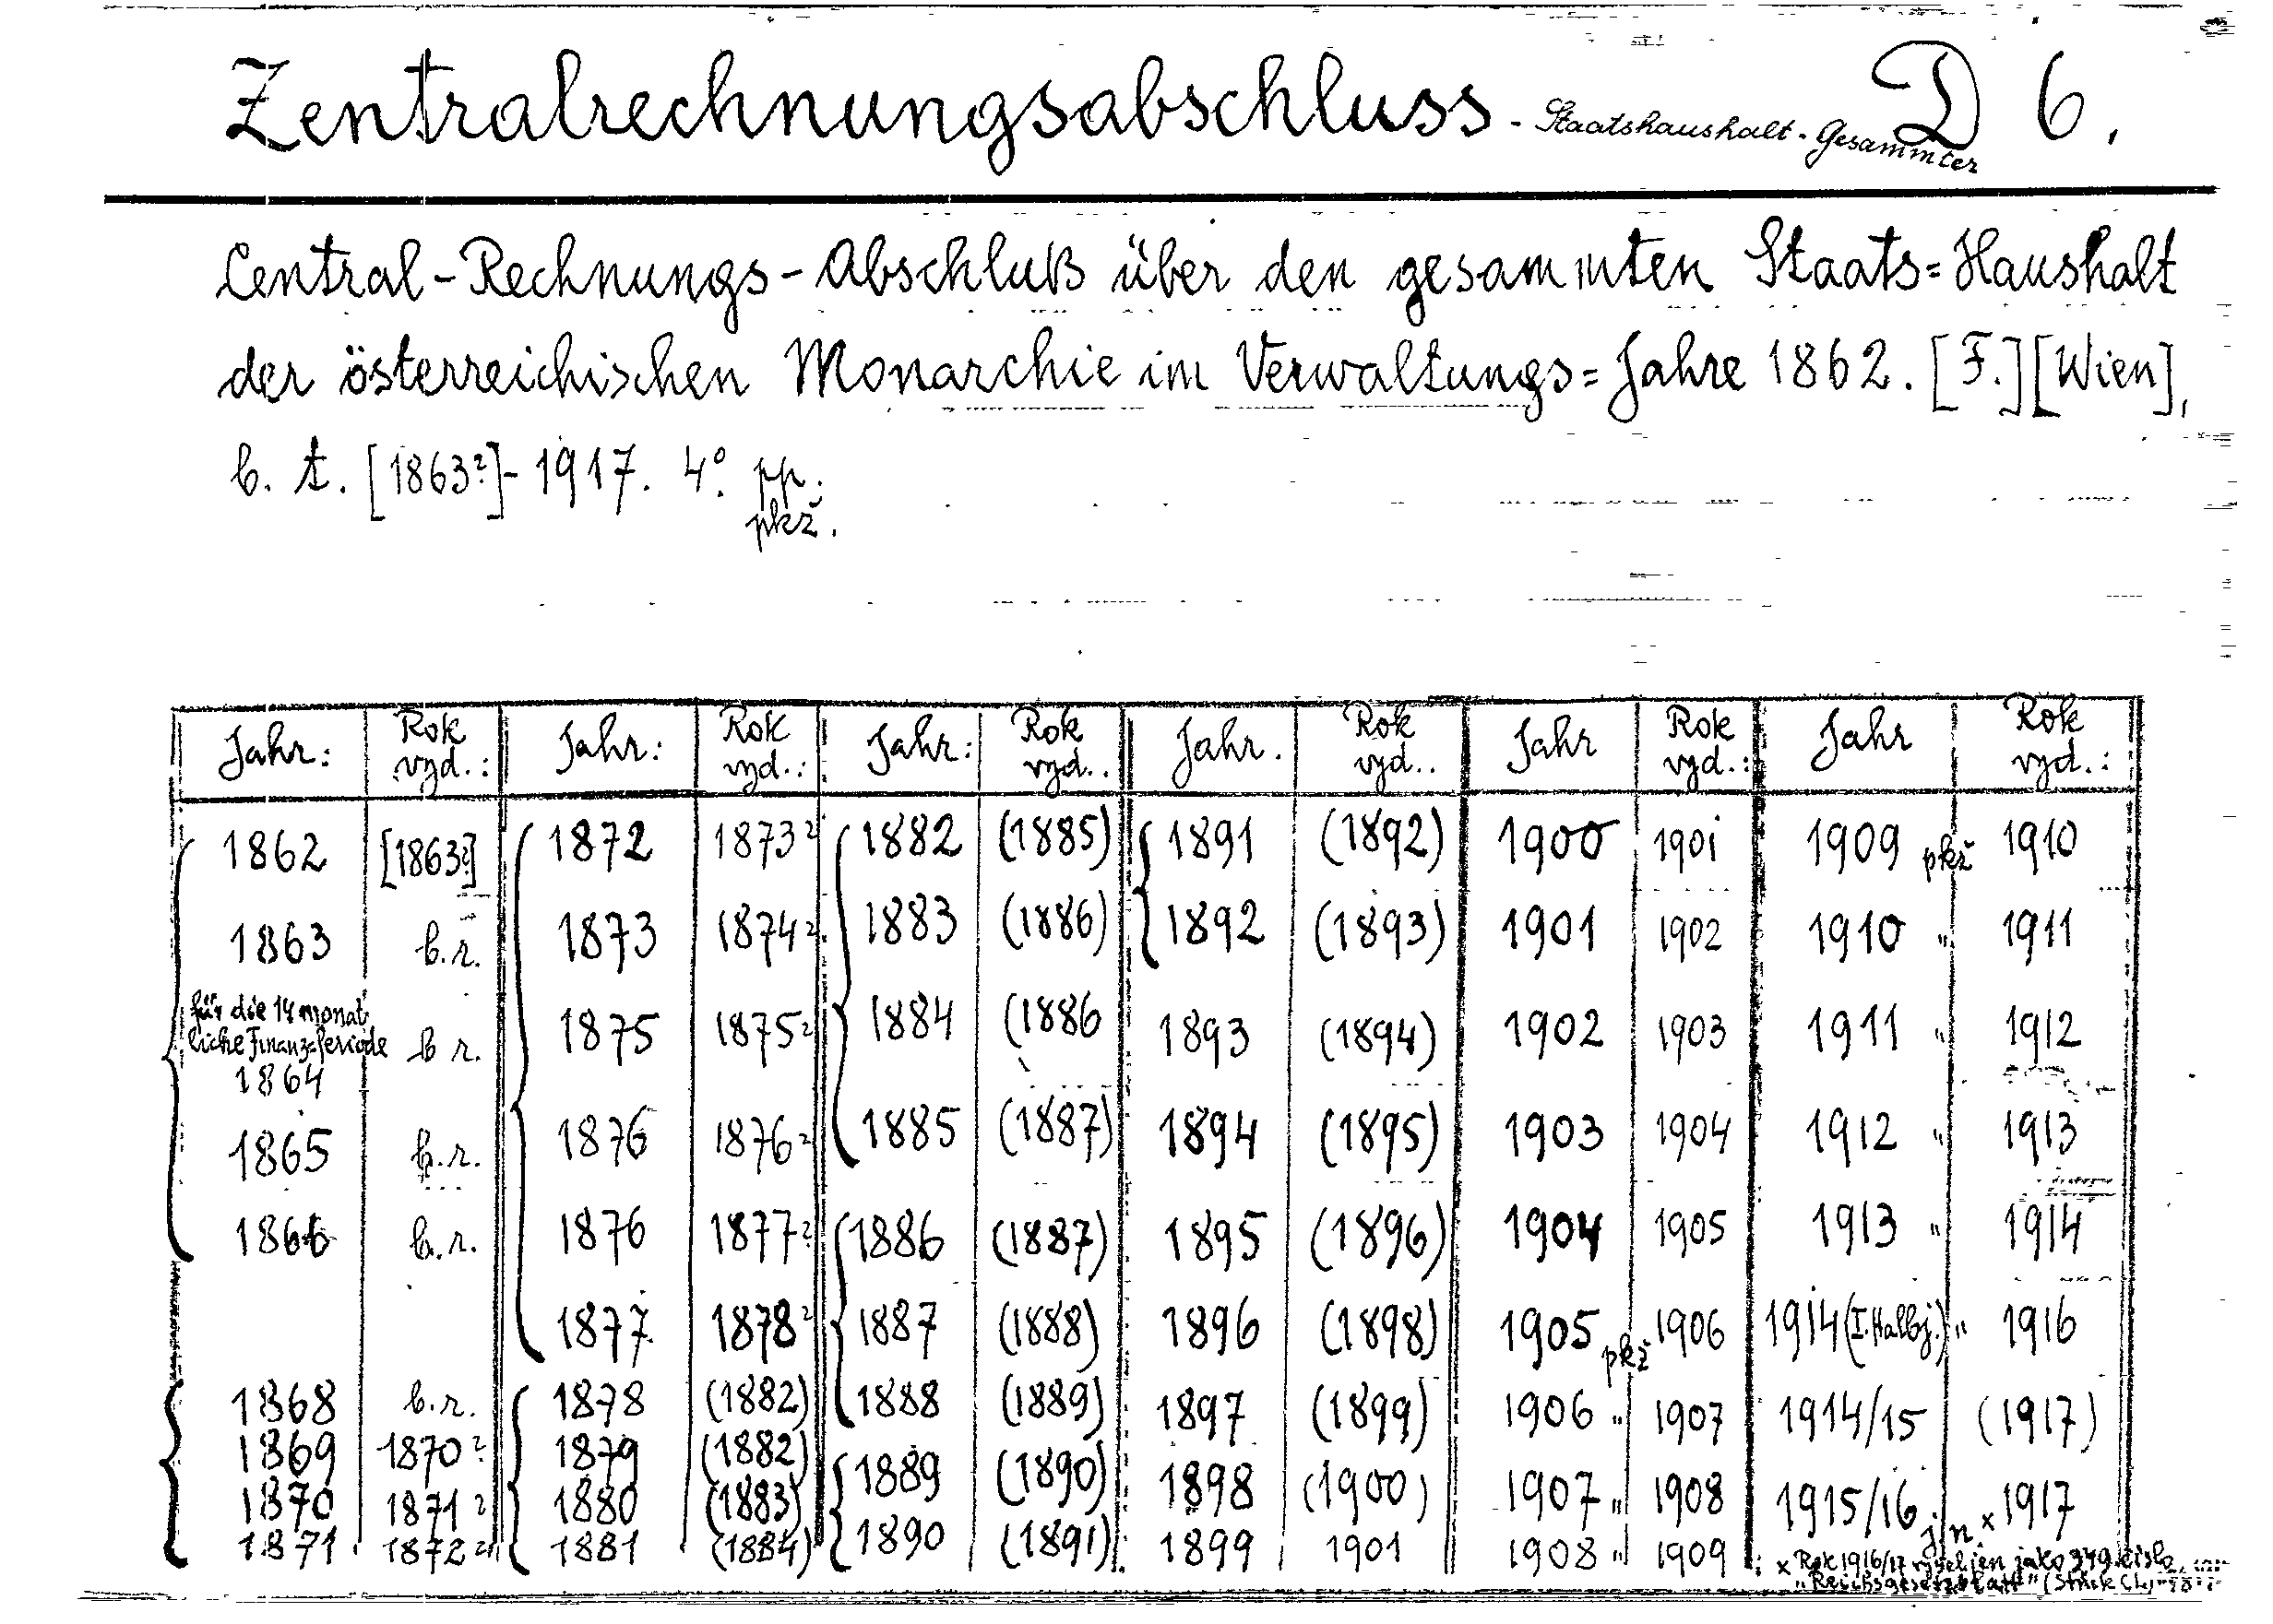 Zentralrechnungsabschluss - Staatshaushalt - Gesammter D 6.
Central-Rechnungs-Abschluß über den gesammten Staats=Haushalt
der österreichischen Monarchie im Verwaltungs=Jahre 1862. [F.] [Wien],
b. t. [1863?]-1917. 4°. pp.
pkž.
Jahr: Rok vyd.: Jahr: Rok vyd.: Jahr: Rok vyd.. Jahr. Rok vyd.. Jahr Rok vyd.: Jahr Rok vyd.:
1862 [1863?] 1872 1873? 1882 (1885) 1891 (1892) 1900 1901 1909 pkž 1910
1863 b.r. 1873 1874? 1883 (1886) 1892 (1893) 1901 1902 1910 " 1911
für die 14 monat
liche Finanz=Periode
1864 b r. 1875 1875? 1884 (1886 1893 (1894) 1902 1903 1911 " 1912
1865 b.r. 1876 1876? 1885 (1887) 1894 (1895) 1903 1904 1912 " 1913
1866 b.r. 1876 1877? 1886 (1887) 1895 (1896) 1904 1905 1913 " 1914
1877 1878? 1887 (1888) 1896 (1898) 1905 pkž 1906 1914 (I. Halbj.) " 1916
1868 b.r. 1878 (1882) 1888 (1889) 1897 (1899) 1906 " 1907 1914/15 (1917)
1869 1870? 1879 (1882) 1889 (1890) 1898 (1900) 1907 " 1908 1915/16 j. n. × 1917
1870 1871? 1880 (1883)
1871 1872? 1881 (1884) 1890 (1891) 1899 1901 1908 " 1909
× Rok 1916/17 jako 349 číslo
"Reichsgesetzblatt" (Stück